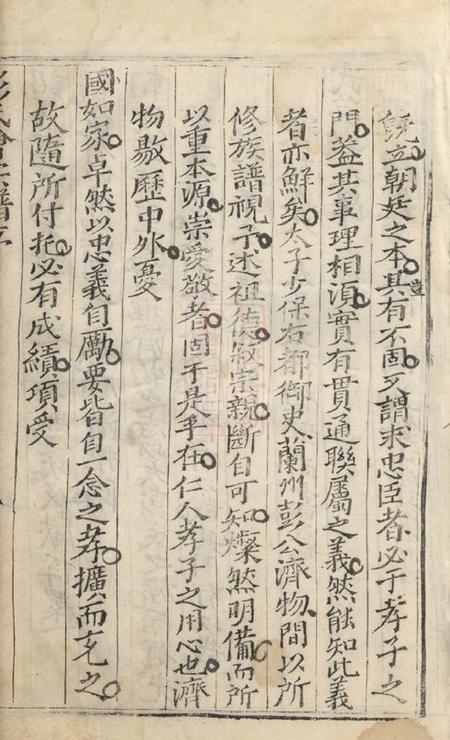 旣立朝廷之本其豈有不固又謂求忠臣者必于孝子之
門蓋其事理相湏實有貫通聯屬之義然能知此義
者亦鮮矣太子少保右都御史蘭州彭公濟物間以所
修族譜視予述祖德叙宗親斷自可知燦然明備而所
以重本源崇愛敬者固于是乎在仁人孝子之用心也濟
物敭歷中外憂
國如家卓然以忠義自勵要皆自一念之孝擴而充之
故隨所付托必有成績項受
彭氏會宗譜序